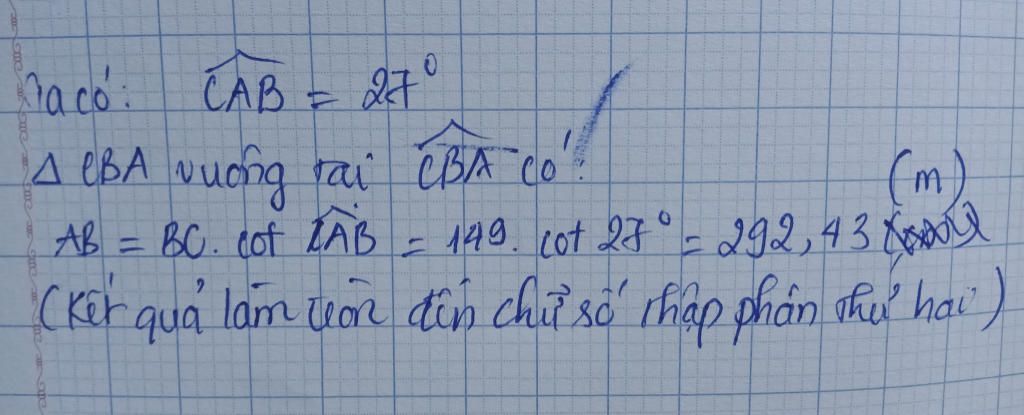 Ta có: CAB = 27°
Δ CBA vuông tại CBA có:
AB = BC. cot CAB = 149. cot 27° = 292,43 (m)
(Kết quả làm tròn đến chữ số thập phân thứ hai)